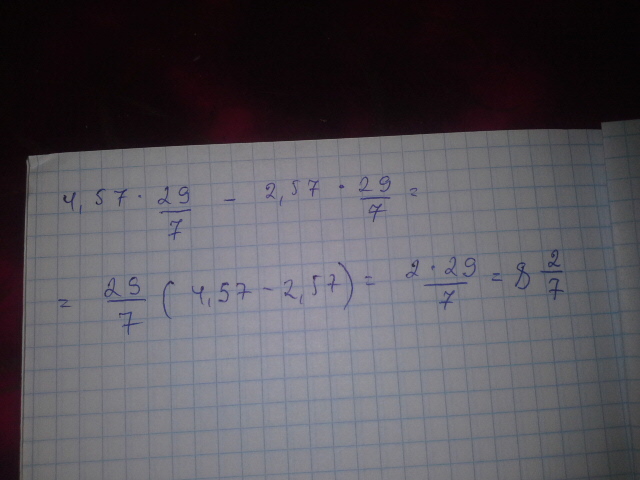 4,57 · 29/7 - 2,57 · 29/7 =
= 29/7 (4,57 - 2,57) = 2 · 29/7 = 8 2/7